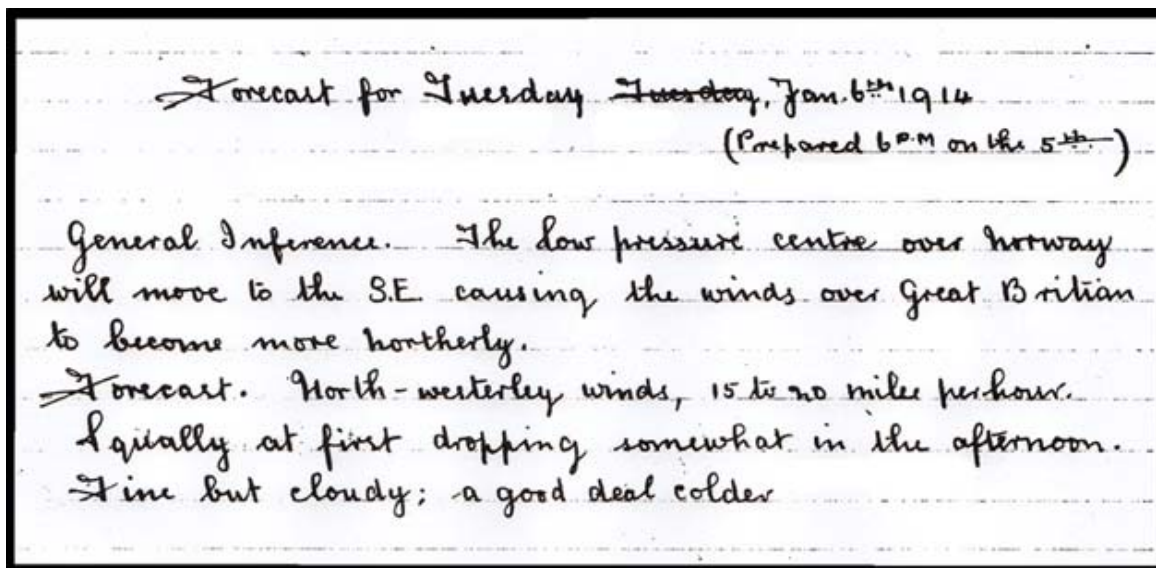 Forecast for Tuesday Tuesday, Jan. 6th 1914
(Prepared 6 P.M on the 5th.)
General Inference. The low pressure centre over Norway
will move to the S.E. causing the winds over Great Britian
to become more northerly.
Forecast. North-westerley winds, 15 to 20 miles per hour.
Squally at first dropping somewhat in the afternoon.
Fine but cloudy; a good deal colder